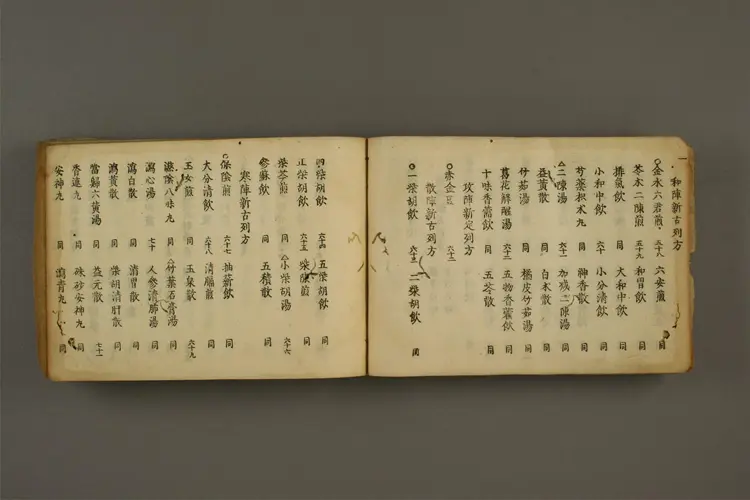 和陣新古列方
○金水六君煎 五十八 六安煎 同
苓朮二陳煎 五十九 和胃飲 同
排氣飲 同 大和中飲 同
小和中飲 六十 小分清飲 同
芍藥枳朮丸 同 神香散 同
△二陳湯 六十一 加減二陳湯 同
益黃散 同 白朮散 同
竹茹湯 同 橘皮竹茹湯 同
葛花解醒湯 六十二 五物香薷飲 同
十味香薷飲 同 五苓散 同
攻陣新定列方
○赤金豆 六十三
散陣新古列方
○一柴胡飲 六十三 二柴胡飲 同
四柴胡飲 六十四 五柴胡飲 同
正柴胡飲 六十五 柴陳煎 同
柴苓煎 同 △小柴胡湯 六十六
參蘇飲 同 五積散 同
寒陣新古列方
○保陰煎 六十七 抽薪飲 同
大分清飲 六十八 清膈煎 同
玉女煎 同 玉泉散 六十九
滋陰八味丸 同 △竹葉石膏湯 同
瀉心湯 七十 人參清肺湯 同
瀉白散 同 清胃散 同
瀉黃散 同 柴胡清肝散 同
當歸六黃湯 同 益元散 七十一
香連丸 同 硃砂安神丸 同
安神丸 同 瀉青丸 同